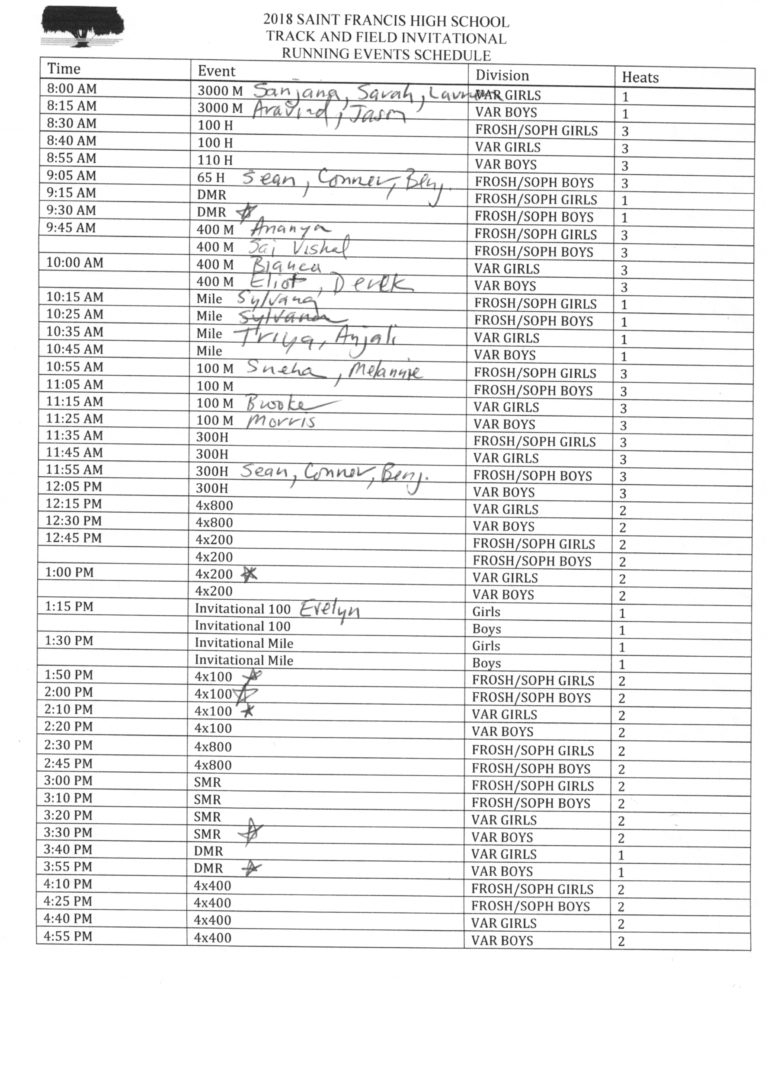 2018 SAINT FRANCIS HIGH SCHOOL
TRACK AND FIELD INVITATIONAL
RUNNING EVENTS SCHEDULE
Time Event Division Heats
8:00 AM 3000 M Sanjana, Sarah, VAR GIRLS 1
8:15 AM 3000 M Aravind, Jason VAR BOYS 1
8:30 AM 100 H FROSH/SOPH GIRLS 3
8:40 AM 100 H VAR GIRLS 3
8:55 AM 110 H VAR BOYS 3
9:05 AM 65 H Sean, Conner, Benj. FROSH/SOPH BOYS 3
9:15 AM DMR FROSH/SOPH GIRLS 1
9:30 AM DMR ☆ FROSH/SOPH BOYS 1
9:45 AM 400 M Ananya FROSH/SOPH GIRLS 3
400 M Sai Vishal FROSH/SOPH BOYS 3
10:00 AM 400 M Bianca VAR GIRLS 3
400 M Eliot, Derek VAR BOYS 3
10:15 AM Mile Sylvana FROSH/SOPH GIRLS 1
10:25 AM Mile Sylvana FROSH/SOPH BOYS 1
10:35 AM Mile Triya, Anjali VAR GIRLS 1
10:45 AM Mile VAR BOYS 1
10:55 AM 100 M Sneha, Melannie FROSH/SOPH GIRLS 3
11:05 AM 100 M FROSH/SOPH BOYS 3
11:15 AM 100 M Brooke VAR GIRLS 3
11:25 AM 100 M Morris VAR BOYS 3
11:35 AM 300H FROSH/SOPH GIRLS 3
11:45 AM 300H VAR GIRLS 3
11:55 AM 300H Sean, Conner, Benj. FROSH/SOPH BOYS 3
12:05 PM 300H VAR BOYS 3
12:15 PM 4x800 VAR GIRLS 2
12:30 PM 4x800 VAR BOYS 2
12:45 PM 4x200 FROSH/SOPH GIRLS 2
4x200 FROSH/SOPH BOYS 2
1:00 PM 4x200 ☆ VAR GIRLS 2
4x200 VAR BOYS 2
1:15 PM Invitational 100 Evelyn Girls 1
Invitational 100 Boys 1
1:30 PM Invitational Mile Girls 1
Invitational Mile Boys 1
1:50 PM 4x100 ☆ FROSH/SOPH GIRLS 2
2:00 PM 4x100 ☆ FROSH/SOPH BOYS 2
2:10 PM 4x100 ☆ VAR GIRLS 2
2:20 PM 4x100 VAR BOYS 2
2:30 PM 4x800 FROSH/SOPH GIRLS 2
2:45 PM 4x800 FROSH/SOPH BOYS 2
3:00 PM SMR FROSH/SOPH GIRLS 2
3:10 PM SMR FROSH/SOPH BOYS 2
3:20 PM SMR VAR GIRLS 2
3:30 PM SMR ☆ VAR BOYS 2
3:40 PM DMR VAR GIRLS 1
3:55 PM DMR ☆ VAR BOYS 1
4:10 PM 4x400 FROSH/SOPH GIRLS 2
4:25 PM 4x400 FROSH/SOPH BOYS 2
4:40 PM 4x400 VAR GIRLS 2
4:55 PM 4x400 VAR BOYS 2